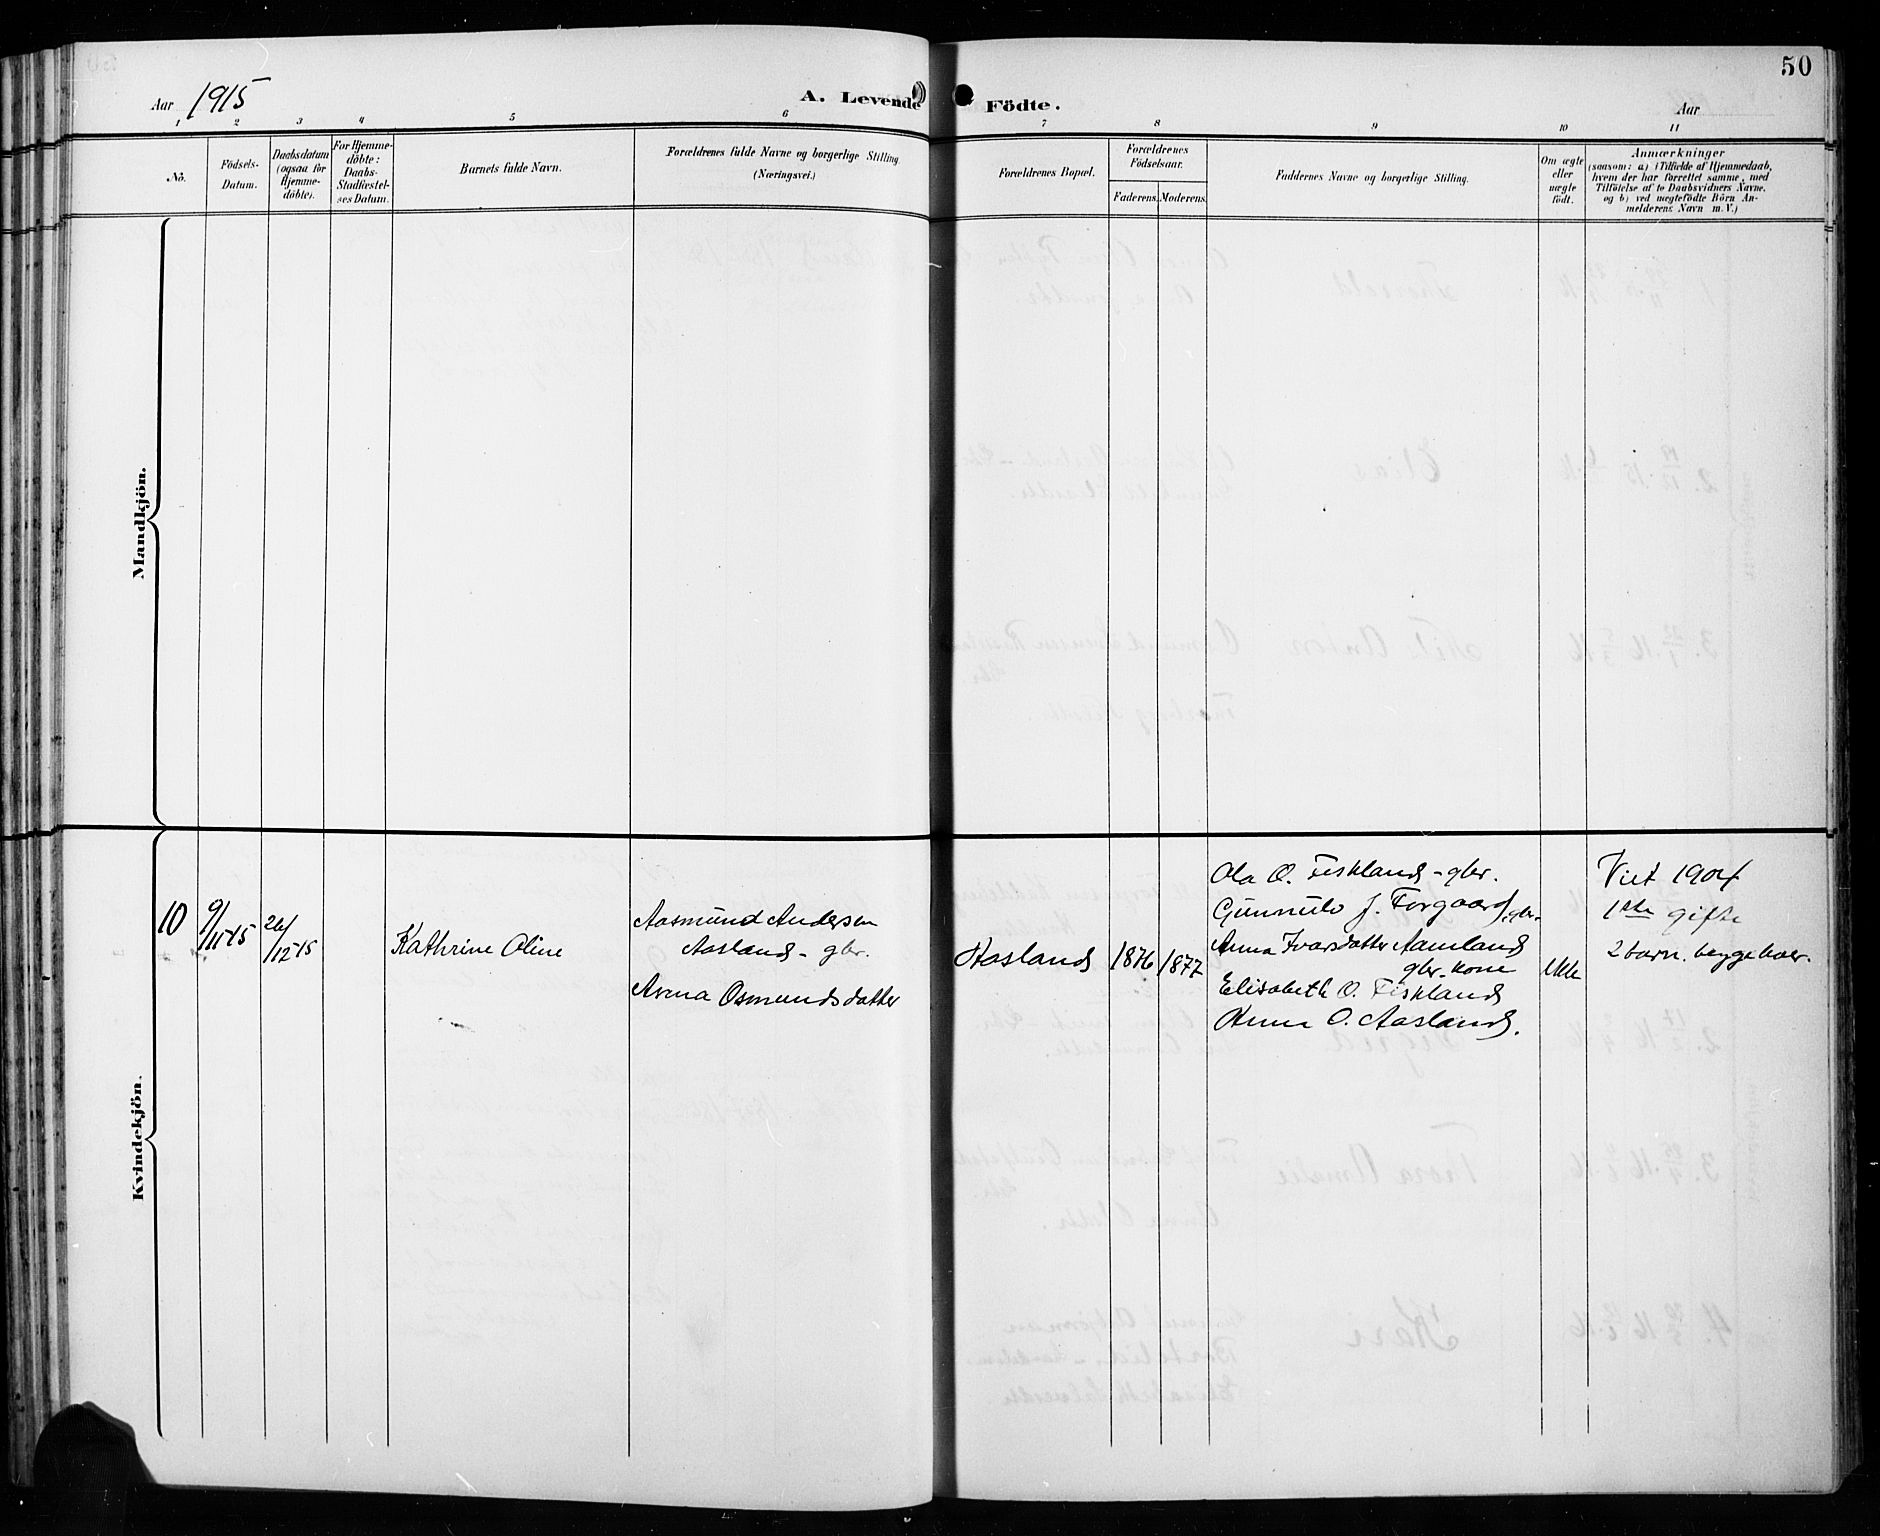 50
Aar 1915
A. Levende Födte.
Aar
1 2 3 4 5 6 7 8 9 10 11
No.
Födsels-
Datum.
Daabsdatum
(ogsaa for
Hjemme-
döbte).
For Hjemme-
döbte:
Daabs-
Stadfæstel-
ses Datum.
Barnets fulde Navn.
Forældrenes fulde Navne og borgerlige Stilling.
(Næringsvei.)
Forældrenes Bopæl.
Forældrenes
Födselsaar.
Faderens. Moderens.
Faddernes Navne og borgerlige Stilling.
Om ægte
eller
uægte
födt.
Anmærkninger
(saasom: a) i Tilfælde af Hjemmedaab,
hvem der har forrettet samme, med
Tilföielse af to Daabsvidners Navne,
og b) ved uægtefödte Börn An-
melderens Navn m. V.)
Mandkjön.
Kvindekjön.
10
9/11-15
26/12-15
Kathrine Oline
Aasmund Andersen
Aasland - gbr.
Anna Osmundsdatter
Aasland
1876
1877
Ola O. Fiskland - gbr.
Gunnulv J. Forgaard, gbr.
Anna Ivarsdatter Aamland
gbr. kone
Elisabeth O. Fiskland
Anna O. Aasland.
ekte
Viet 1904
1ste gifte
2 barn. begge lever.